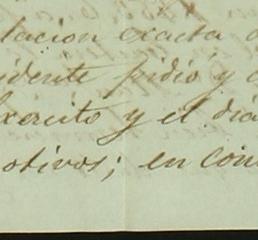 lacion exacta d
sidente pidió y c
xercito y el dia
otivos; en con